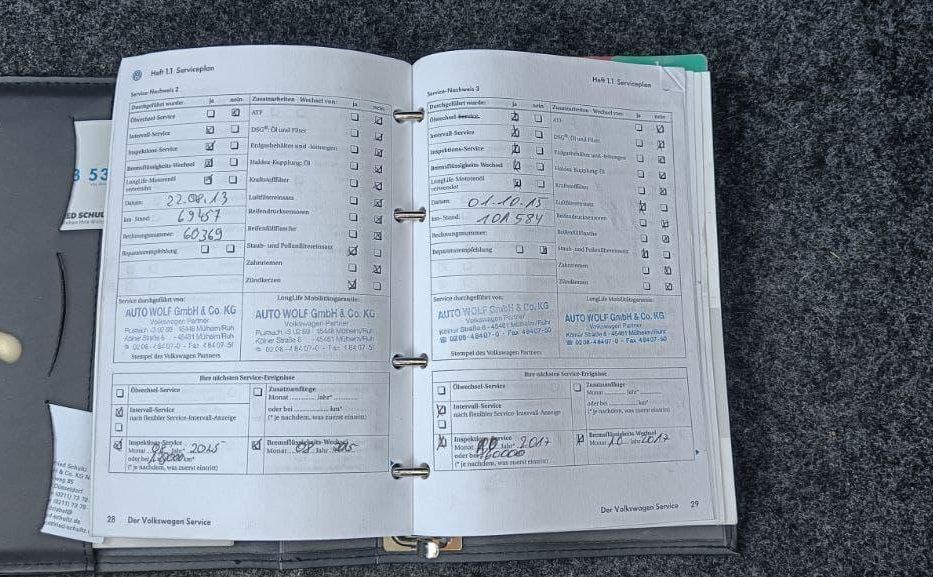 Heft 1.1 Serviceplan
Service-Nachweis 2
Durchgeführt wurde: ja nein
Ölwechsel-Service
Intervall-Service
Inspektions-Service
Bremsflüssigkeits-Wechsel
LongLife-Motorenöl
verwendet
Datum: 22.08.13
km-Stand: 69457
Rechnungsnummer: 60369
Reparaturempfehlung
Zusatzarbeiten - Wechsel von: ja nein
ATF
DSG®-Öl und Filter
Haldex-Kupplung: Öl
Kraftstofffilter
Luftfiltereinsatz
Reifendrucksensoren
Reifenfüllflasche
Staub- und Pollenfiltereinsatz
Zahnriemen
Zündkerzen
Service durchgeführt von:
AUTO WOLF GmbH & Co. KG
Volkswagen Partner
LongLife Mobilitätsgarantie:
AUTO WOLF GmbH & Co. KG
Volkswagen Partner
Stempel des Volkswagen Partners
Ihre nächsten Service-Ereignisse
Ölwechsel-Service
Zusatzumfänge
Monat Jahr*
oder bei km*
(* je nachdem, was zuerst eintritt)
Intervall-Service
nach flexibler Service-Intervall-Anzeige
Inspektions-Service
Monat Jahr* 2015
oder bei km*
(* je nachdem, was zuerst eintritt)
Bremsflüssigkeits-Wechsel
Monat 08 Jahr
28 Der Volkswagen Service
Heft 1.1 Serviceplan
Service-Nachweis 3
Durchgeführt wurde: ja nein
Ölwechsel-Service
Intervall-Service
Inspektions-Service
Bremsflüssigkeits-Wechsel
LongLife-Motorenöl
verwendet
Datum: 01.10.15
km-Stand: 101.584
Rechnungsnummer:
Reparaturempfehlung
Zusatzarbeiten - Wechsel von: ja nein
ATF
DSG®-Öl und Filter
Haldex-Kupplung: Öl
Kraftstofffilter
Luftfiltereinsatz
Reifendrucksensoren
Reifenfüllflasche
Staub- und Pollenfiltereinsatz
Zahnriemen
Zündkerzen
Service durchgeführt von:
AUTO WOLF GmbH & Co. KG
Volkswagen Partner
Kölner Straße 6 - 45481 Mülheim/Ruhr
☎ 02 08 - 4 84 07-0 - Fax 4 84 07-50
LongLife Mobilitätsgarantie:
AUTO WOLF GmbH & Co. KG
Volkswagen Partner
Kölner Straße 6 - 45481 Mülheim/Ruhr
☎ 02 08 - 4 84 07-0 - Fax 4 84 07-50
Stempel des Volkswagen Partners
Ihre nächsten Service-Ereignisse
Ölwechsel-Service
Zusatzumfänge
Monat Jahr*
oder bei km*
(* je nachdem, was zuerst eintritt)
Intervall-Service
nach flexibler Service-Intervall-Anzeige
Inspektions-Service
Monat 10 2017
oder bei
(* je nachdem, was zuerst eintritt)
Bremsflüssigkeits-Wechsel
Monat 10 Jahr 2017
Der Volkswagen Service 29